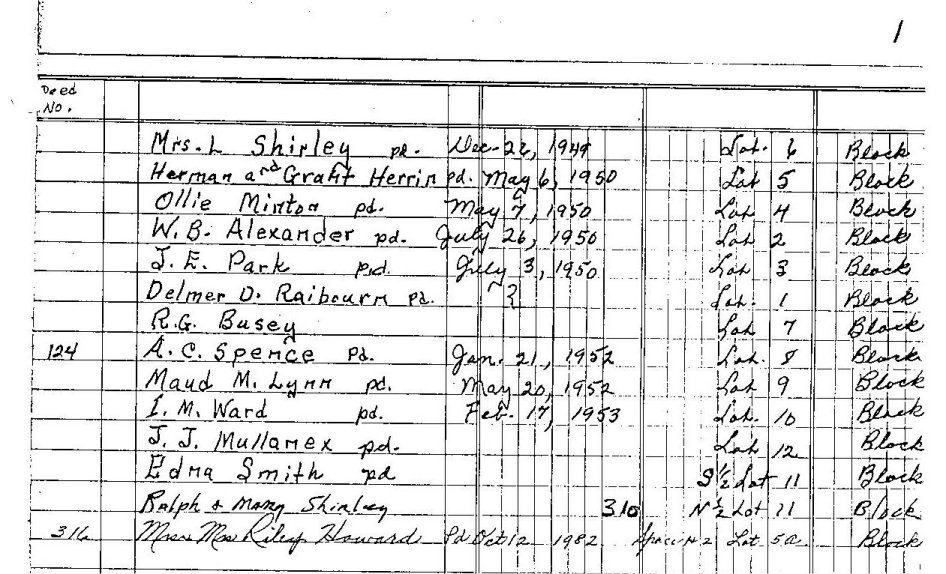 1
Deed
No.
Mrs. L Shirley pd. Dec. 22, 1949 Lot. 6 Block
Herman and Grant Herrin pd. May 6, 1950 Lot 5 Block
Ollie Minton pd. May 7, 1950 Lot 4 Block
W. B. Alexander pd. July 26, 1950 Lot 2 Block
J. E. Park pd. July 3, 1950 Lot 3 Block
Delmer D. Raibourn pd. ? Lot. 1 Block
R.G. Busey Lot 7 Block
124 A. C. Spence Pd. Jan. 21, 1952 Lot. 8 Block
Maud M. Lynn pd. May 20, 1952 Lot 9 Block
I. M. Ward pd. Feb. 17, 1953 Lot. 10 Block
J. J. Mullanex pd. Lot 12 Block
Edna Smith pd S 1/2 Lot 11 Block
Ralph & Mary Shirley 310 N 1/2 Lot 11 Block
316 Riley Howard Pd Oct 12 1982 Space # 2 Lot 5a Block